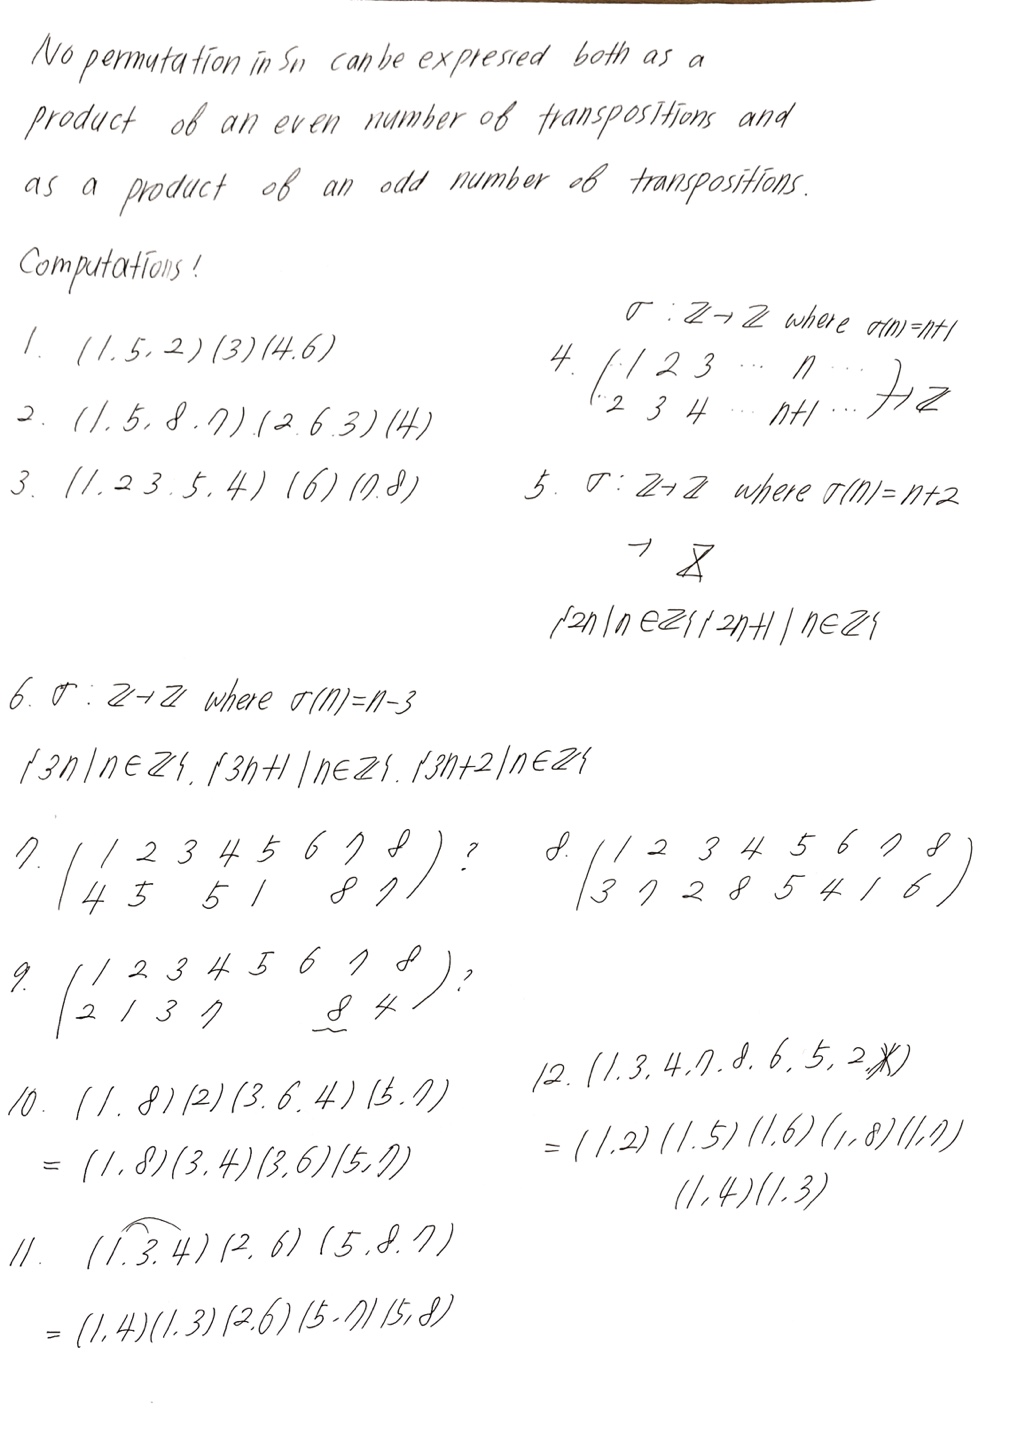 No permutation in Sn can be expressed both as a
product of an even number of transpositions and
as a product of an odd number of transpositions.
Computations!
1. (1.5.2)(3)(4.6)
2. (1.5.8.7).(2.6.3)(4)
3. (1.2 3.5.4) (6) (7.8)
σ : ℤ→ℤ where σ(n)=n+1
4. (·· 1 2 3 ··· n ···
·· 2 3 4 ··· n+1 ···) → ℤ
5. σ : ℤ→ℤ where σ(n)=n+2
→ ℤ
{2n|n∈ℤ} {2n+1|n∈ℤ}
6. σ : ℤ→ℤ where σ(n)=n-3
{3n|n∈ℤ}. {3n+1|n∈ℤ}. {3n+2|n∈ℤ}
7. (1 2 3 4 5 6 7 8
4 5 5 1 8 7) ?
8. (1 2 3 4 5 6 7 8
3 7 2 8 5 4 1 6)
9. (1 2 3 4 5 6 7 8
2 1 3 7 8 4) ?
10. (1.8)(2)(3.6.4)(5.7)
= (1.8)(3.4)(3,6)(5,7)
11. (1.3.4)(2.6)(5.8.7)
= (1.4)(1.3)(2.6)(5.7)(5,8)
12. (1.3.4.7.8.6.5.2.)
= (1.2)(1.5)(1.6)(1,8)(1,7)
(1.4)(1.3)